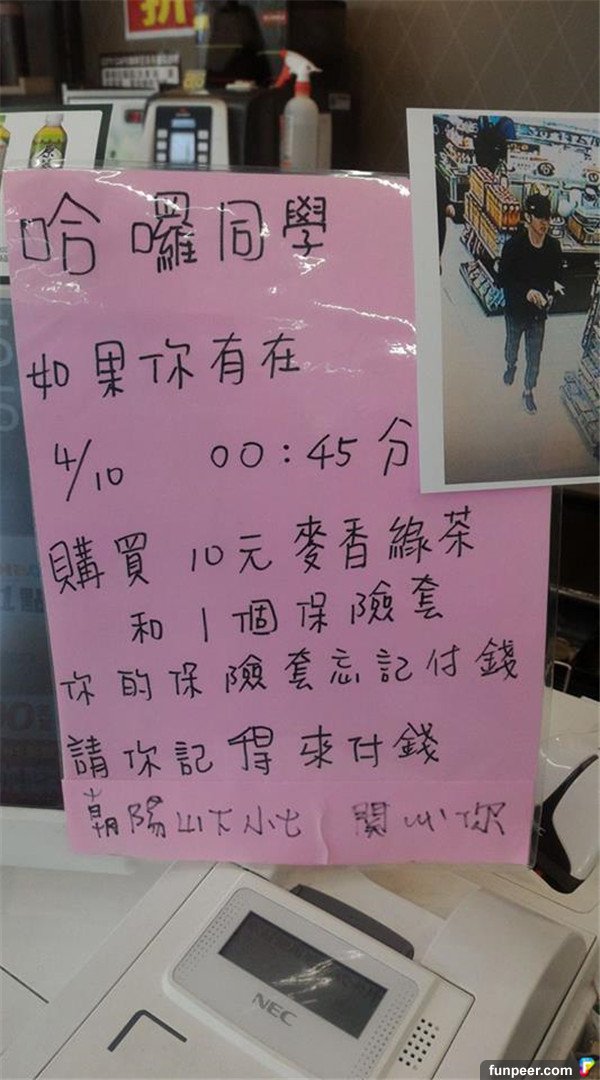 折
哈囉同學
如果你有在
4/10 00:45分
購買 10元麥香綠茶
和 1 個保險套
你的保險套忘記付錢
請你記得來付錢
朝陽山下小七 關心你
NEC
funpeer.com